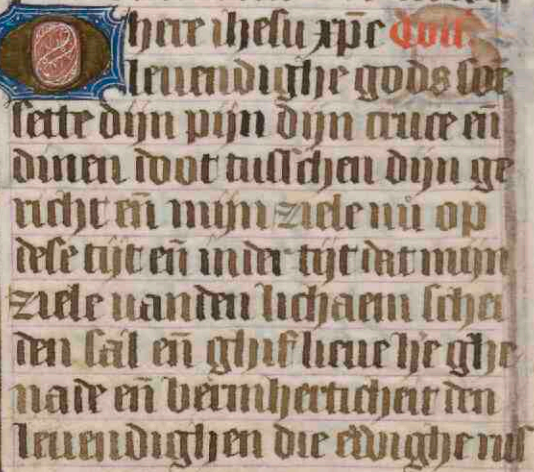 O here ihesu xp̄e
leuendighe gods soe
sette dijn pijn dijn cruce eñ
dinen doot tusschen dijn ge
richt eñ mijn ziele nu op
dese tijt eñ in der tijt dat mijn
ziele vanden lichaem schei
den sal eñ ghif lieue he ghe
nade eñ bermherticheit den
leuendighen die ewighe